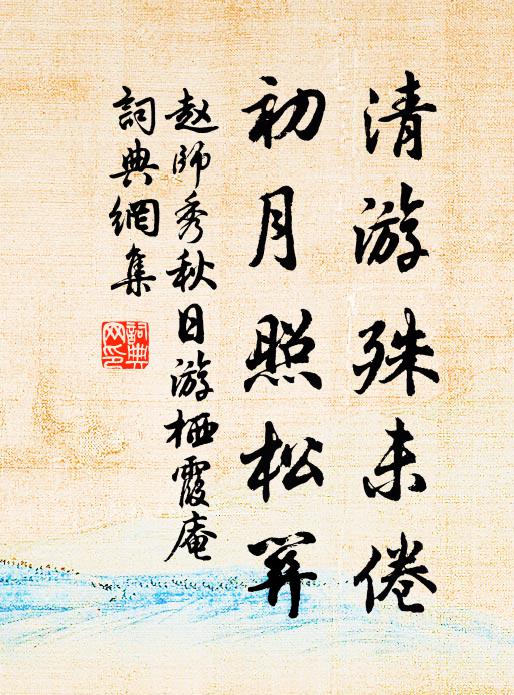 清游殊未倦
初月照松關
赵師秀秋日游栖霞庵
詞典網集
詞典
网印